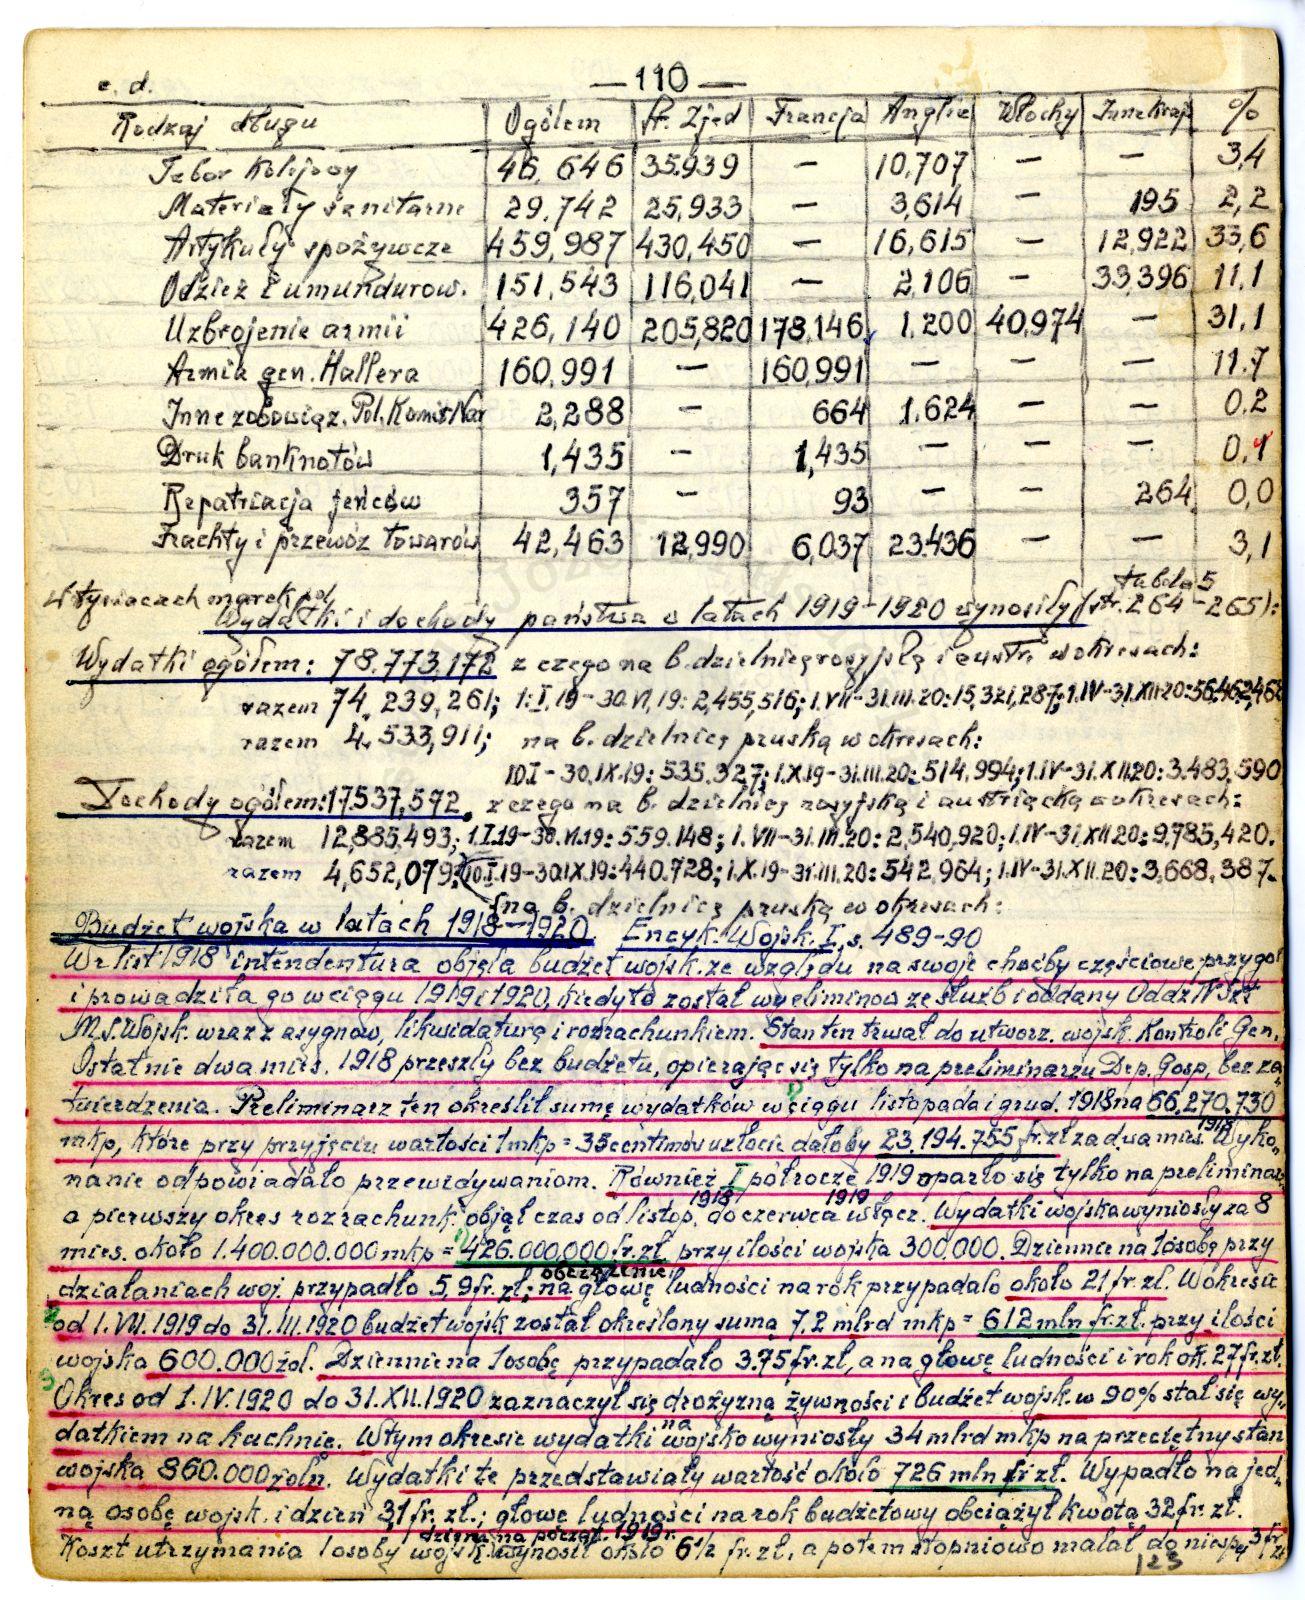 c. d. — 110 —
Rodzaj długu Ogółem St. Zjed Francja Anglia Włochy Inne kraje %
Tabor kolejowy 46,646 35.939 — 10,707 — — 3,4
Materiały sanitarne 29,742 25,933 — 3,614 — 195 2,2
Artykuły spożywcze 459,987 430,450 — 16,615 — 12,922 33,6
Odzież i umundurow. 151,543 116,041 — 2,106 — 33,396 11,1
Uzbrojenie armii 426,140 205,820 178,146 1.200 40,974 — 31,1
Armia gen. Hallera 160,991 — 160,991 — — — 11.7
Inne zobowiąz. Pol. Komit Nar 2,288 — 664 1.624 — — 0.2
Druk banknotów 1,435 — 1,435 — — — 0,1
Repatriacja jeńców 357 — 93 — — 264 0,0
Frachty i przewóz towarów 42,463 12,990 6,037 23.436 — — 3,1
tabela 5
W tysiącach marek pol.
Wydatki i dochody państwa w latach 1919-1920 wynosiły (str. 264-265):
Wydatki ogółem: 78.773,172 z czego na b. dzielnicę rosyjską i austr. w okresach:
razem 74,239,261; 1.I.19-30.VI,19: 2,455,516; 1.VII-31.III.20: 15,321,287; 1.IV-31.XII.20: 56,462,46
razem 4.533,911; na b. dzielnicę pruską w okresach:
10.I-30.IX.19: 535.327; 1.X.19-31.III.20: 514,994; 1.IV-31.XII.20: 3.483,590
Dochody ogółem: 17537,572, z czego na b. dzielnicę rosyjską i austriacką w okresach:
razem 12,885.493; 1.I.19-30.VI.19: 559.148; 1.VII-31.III.20: 2,540,920; 1.IV-31.XII.20: 9,785,420.
razem 4,652,079; 10.I.19-30.IX.19: 440.728; 1.X.19-31.III.20: 542,964; 1.IV-31.XII.20: 3,668,387.
na b. dzielnicę pruską w okresach:
Budżet wojska w latach 1918-1920. Encyk. Wojsk. I, s. 489-90
W list 1918 intendentura objęła budżet wojsk. ze względu na swoje choćby częściowe przygot
i prowadziła go w ciągu 1919 i 1920, kiedy to został wyeliminow ze służb i oddany Oddz IV Szt
M.S. Wojsk. wraz z asygnow, likwidaturą i rozrachunkiem. Stan ten trwał do utworz. wojsk. Kontroli Gen.
Ostatnie dwa mies. 1918 przeszły bez budżetu, opierając się tylko na preliminarzu Dep. Gosp. bez za
twierdzenia. Preliminarz ten określił sumę wydatków w ciągu listopada i grud. 1918 na 66.270.730
mkp, które przy przyjęciu wartości 1 mkp = 35 centimów w złocie dałoby 23.194.755 fr. zł za dwa mies. 1918 Wyko
nanie odpowiadało przewidywaniom. Również I półrocze 1919 oparło się tylko na preliminar
a pierwszy okres rozrachunk. objął czas od listop. 1918 do czerwca 1919 włącz. Wydatki wojska wyniosły za 8
mies. około 1.400.000.000 mkp = 426.000.000 fr. zł przy ilości wojska 300.000. Dziennie na 1 osobę przy
działaniach woj. przypadło 5,9 fr. zł; obciążenie na głowę ludności na rok przypadało około 21 fr. zł. W okresie
od 1.VII.1919 do 31.III.1920 budżet wojsk został określony sumą 7.2 mlrd mkp = 612 mln fr. zł. przy ilości
wojska 600.000 żoł. Dziennie na 1 osobę przypadało 3.75 fr. zł, a na głowę ludności i rok ok. 27 fr. zł.
Okres od 1.IV.1920 do 31.XII.1920 zaznaczył się drożyzną żywności i budżet wojsk. w 90% stał się wy
datkiem na kuchnię. W tym okresie wydatki na wojsko wyniosły 34 mlrd mkp na przeciętny stan
wojska 860.000 żołn. Wydatki te przedstawiały wartość około 726 mln fr zł. Wypadło na jed
ną osobę wojsk. i dzień 3,1 fr. zł.; głowę ludności na rok budżetowy obciążył kwotą 32 fr. zł.
Koszt utrzymania 1 osoby wojsk. dzien. na począt. 1919 r. wynosił około 6 1/2 fr. zł, a potem stopniowo malał do niesp 3 fr zł
123